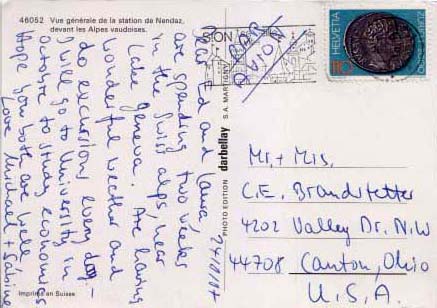 46052 Vue générale de la station de Nendaz,
devant les Alpes vaudoises.
SION
PAR AVION
HELVETIA
24/8/87
Dear Ed and Laura,
are spending two weeks
in the Swiss alps, near
Lake Geneva. Are having
wonderful weather and
do excursions every day. –
I will go to University in
october to study economics
Hope you both are well
Love Michael + Sabine
Imprimé en Suisse
PHOTO EDITION darbellay S.A. MARTIGNY
Mr. + Mrs.
C.E. Brandstetter
4202 Valley Dr. N.W
44708 Canton, Ohio
U.S.A.